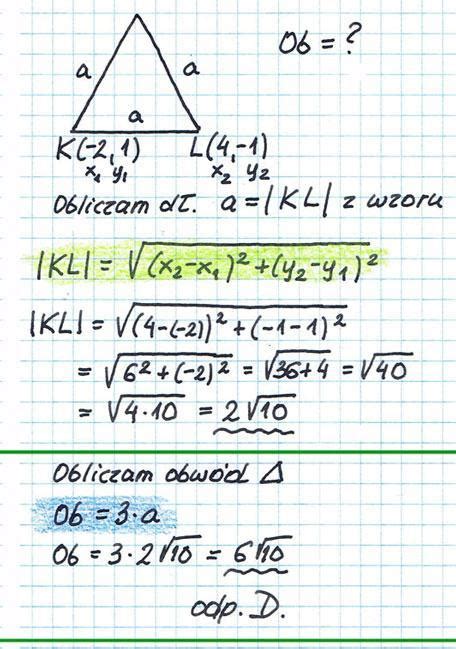 Ob = ?
a a
a
K(-2, 1) L(4,-1)
x₁ y₁ x₂ y₂
Obliczam dł. a = |KL| z wzoru
|KL| = √((x₂-x₁)² + (y₂-y₁)²)
|KL| = √((4-(-2))² + (-1-1)²)
= √(6² + (-2)²) = √(36+4) = √40
= √(4·10) = 2√10
Obliczam obwód Δ
Ob = 3·a
Ob = 3·2√10 = 6√10
odp. D.